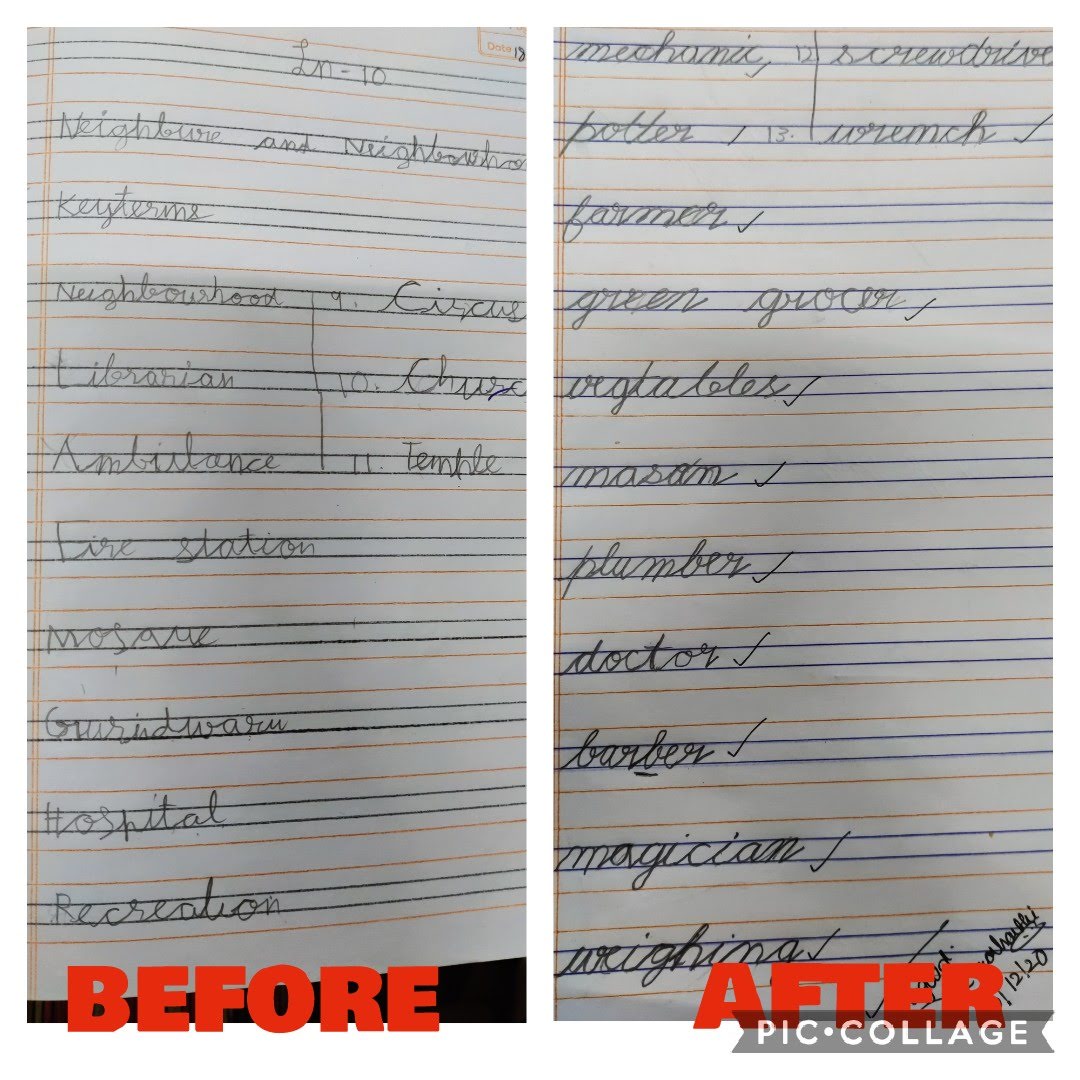 Date 18
Ln-10
Neighbure and Neighbourho
Keyterms
Neighbourhood 9. Circus
Librarian 10. Churc
Ambulance 11. Temple
Fire station
Mosque
Guruidwaru
Hospital
Recreation
BEFORE
mechanic, 12 screwdrive
potter 13. wrench
farmer
green grocer
vegtables
mason
plumber
doctor
barber
magician
weighing
1/12/20
AFTER
PIC•COLLAGE